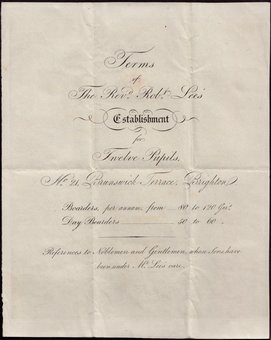 Terms
of
The Revd. Robt. Lee's
Establishment
for
Twelve Pupils,
No. 21, Brunswick Terrace, Brighton,
Boarders, per annum, from 80 to 120 Gs.
Day Boarders 50 to 60
References to Noblemen and Gentlemen, whose Sons have
been under Mr. Lee's care.